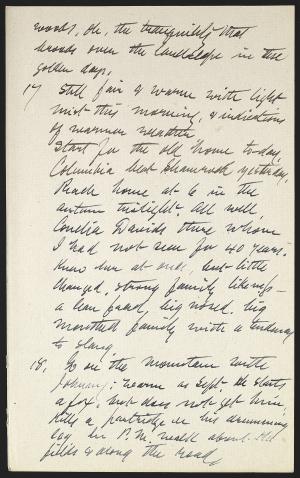 woods, oh, the tranquility that
broods over the landscape in these
golden days.
17 Still fair & warm with light
mist this morning, & indications
of warmer weather
Start for the old home to-day,
Columbia beat Shamrock yesterday,
Reach home at 6 in the
autumn twilight. All well,
Cornelia Davids there whom
I had not seen for 40 years.
Knew her at once, but little
changed, strong family likeness —
a lean faced, big nosed, big
mouthed family with a tendency
to slang.
18. Go on the mountain with
Johnny; warm as Sept. He starts
a fox, but does not get him,
kills a partridge on his drumming
log. In P.M. walk about the
fields & along the road,